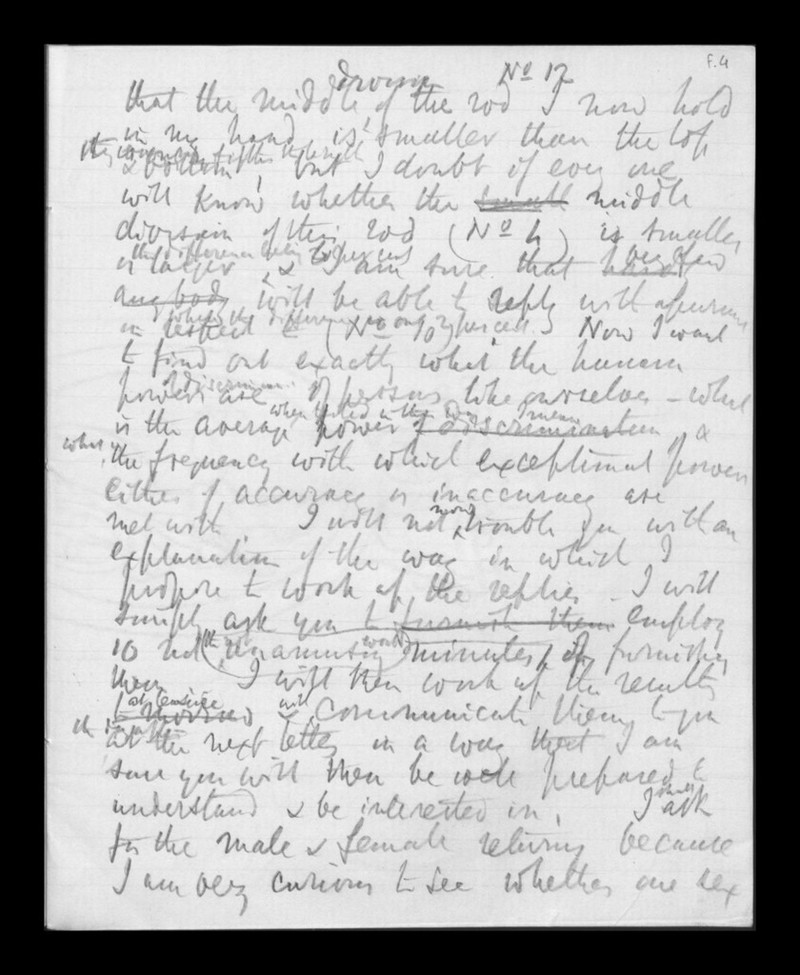 F.4
division No 12
that the middle of the rod I now hold
in my hand is smaller than the top
& bottom, but I doubt if every one
will know whether the small middle
division of this rod (No 4) is smaller
the difference being
or larger, & I am sure that hardly very few
any body will be able to reply with
in respect to (No
Now I want
to find out exactly what the human
of discrimin.
powers are of persons like ourselves – what
when tested in this way mean
is the average power of discrimination, &
what
the frequency with which exceptional powers
either of accuracy or inaccuracy are
now
met with I will not trouble you with an
explanation of the way in which I
propose to work up the replies – I will
simply ask you to furnish them employ
10 not unamusing minutes in furnishing
them I will then work up the results
at leisure will
& communicate them to you
at the next letter in a way that I am
sure you will then be well prepared to
understand & be interested in, I shall ask
for the male & female returns because
I am very curious to see whether one sex